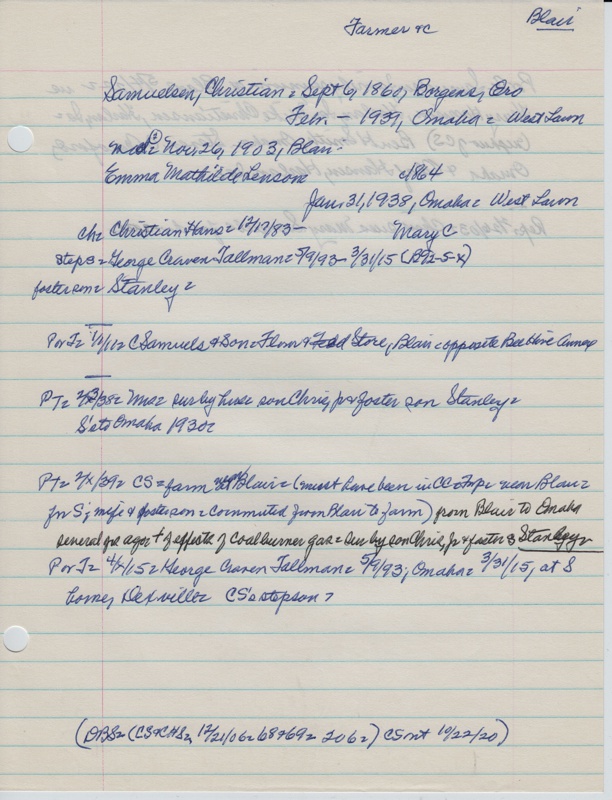 Blair
Farmer &c
Samuelsen, Christian = Sept 6, 1860, Borgens, Oro
Feb. – 1939, Omaha = West Lawn
md② = Nov. 26, 1903, Blair =
Emma Mathilde Lenson c1864
Jan. 31, 1938, Omaha = West Lawn
ch = Christian Hans = 12/17/83 – Mary C
step s = George Craven Tallman = 5/9/93 – 3/31/15 (B92-5-X)
foster son = Stanley =
C Samuels & Son = Flour & Feed Store, Blair = opposite Bee Hive Annex
PT = Mrs = sur by hus = son Chris, jr & foster son Stanley =
S's to Omaha 1930 =
PT = 2/X/39 = CS = farm Blair = (must have been in CC = Twp = near Blair =
for S; wife & foster son = commuted from Blair to farm) from Blair to Omaha
several yrs ago = † of effects of coal burner gas = sur by son Chris, Jr & foster S Stanley =
4/X/15 = George Craven Tallman = 5/9/93, Omaha = 3/31/15, at S
home, Dexville = CS's stepson?
(DBS = (CS & CHS = 12/21/06 = 68 & 69 = 206 =) CS nt 10/22/20)